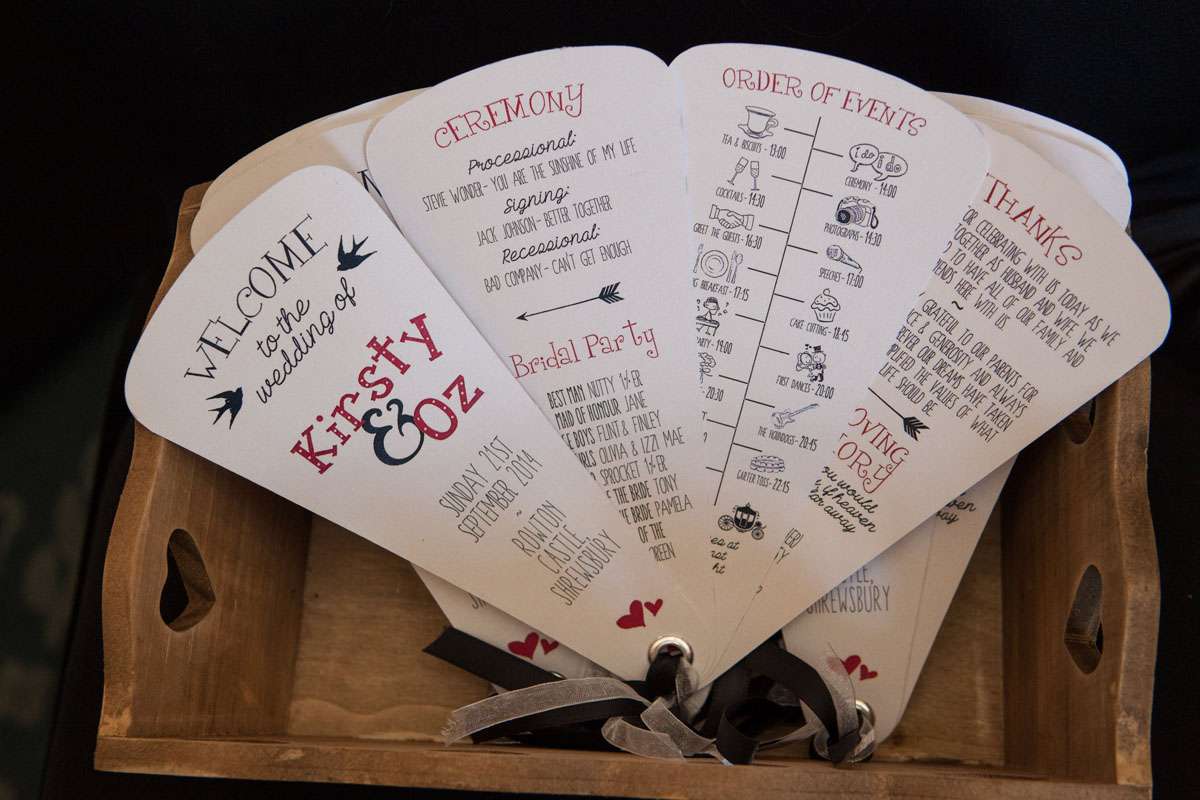 WELCOME
to the
wedding of
Kirsty
& Oz
SUNDAY 21ST
SEPTEMBER 2014
~
ROWTON
CASTLE,
SHREWSBURY
CEREMONY
Processional:
STEVIE WONDER- YOU ARE THE SUNSHINE OF MY LIFE
Signing:
JACK JOHNSON- BETTER TOGETHER
Recessional:
BAD COMPANY- CAN'T GET ENOUGH
Bridal Party
BEST MAN NUTTY
MAID OF HONOUR JANE
BOYS FLINT & FINLEY
OLIVIA & IZZI MAE
SPROCKET
THE BRIDE TONY
BRIDE PAMELA
OF THE
ORDER OF EVENTS
TEA & BISCUITS - 13:00
I do i do
CEREMONY - 14:00
COCKTAILS - 14:30
PHOTOGRAPHS - 14:30
GREET THE GUESTS - 16:30
SPEECHES - 17:00
BREAKFAST - 17:15
CAKE CUTTING - 18:45
19:00
FIRST DANCES - 20:00
20:30
THE HOUNDOGS - 20:45
GARTER TOSS - 22:45
at
THANKS
FOR CELEBRATING WITH US TODAY AS WE
TOGETHER AS HUSBAND AND WIFE. WE
TO HAVE ALL OF OUR FAMILY AND
HERE WITH US.
~
GRATEFUL TO OUR PARENTS FOR
& GENEROSITY, AND ALWAYS
OUR DREAMS HAVE TAKEN
THE VALUES OF WHAT
LIFE SHOULD BE
would
if heaven
away
CASTLE,
SHREWSBURY